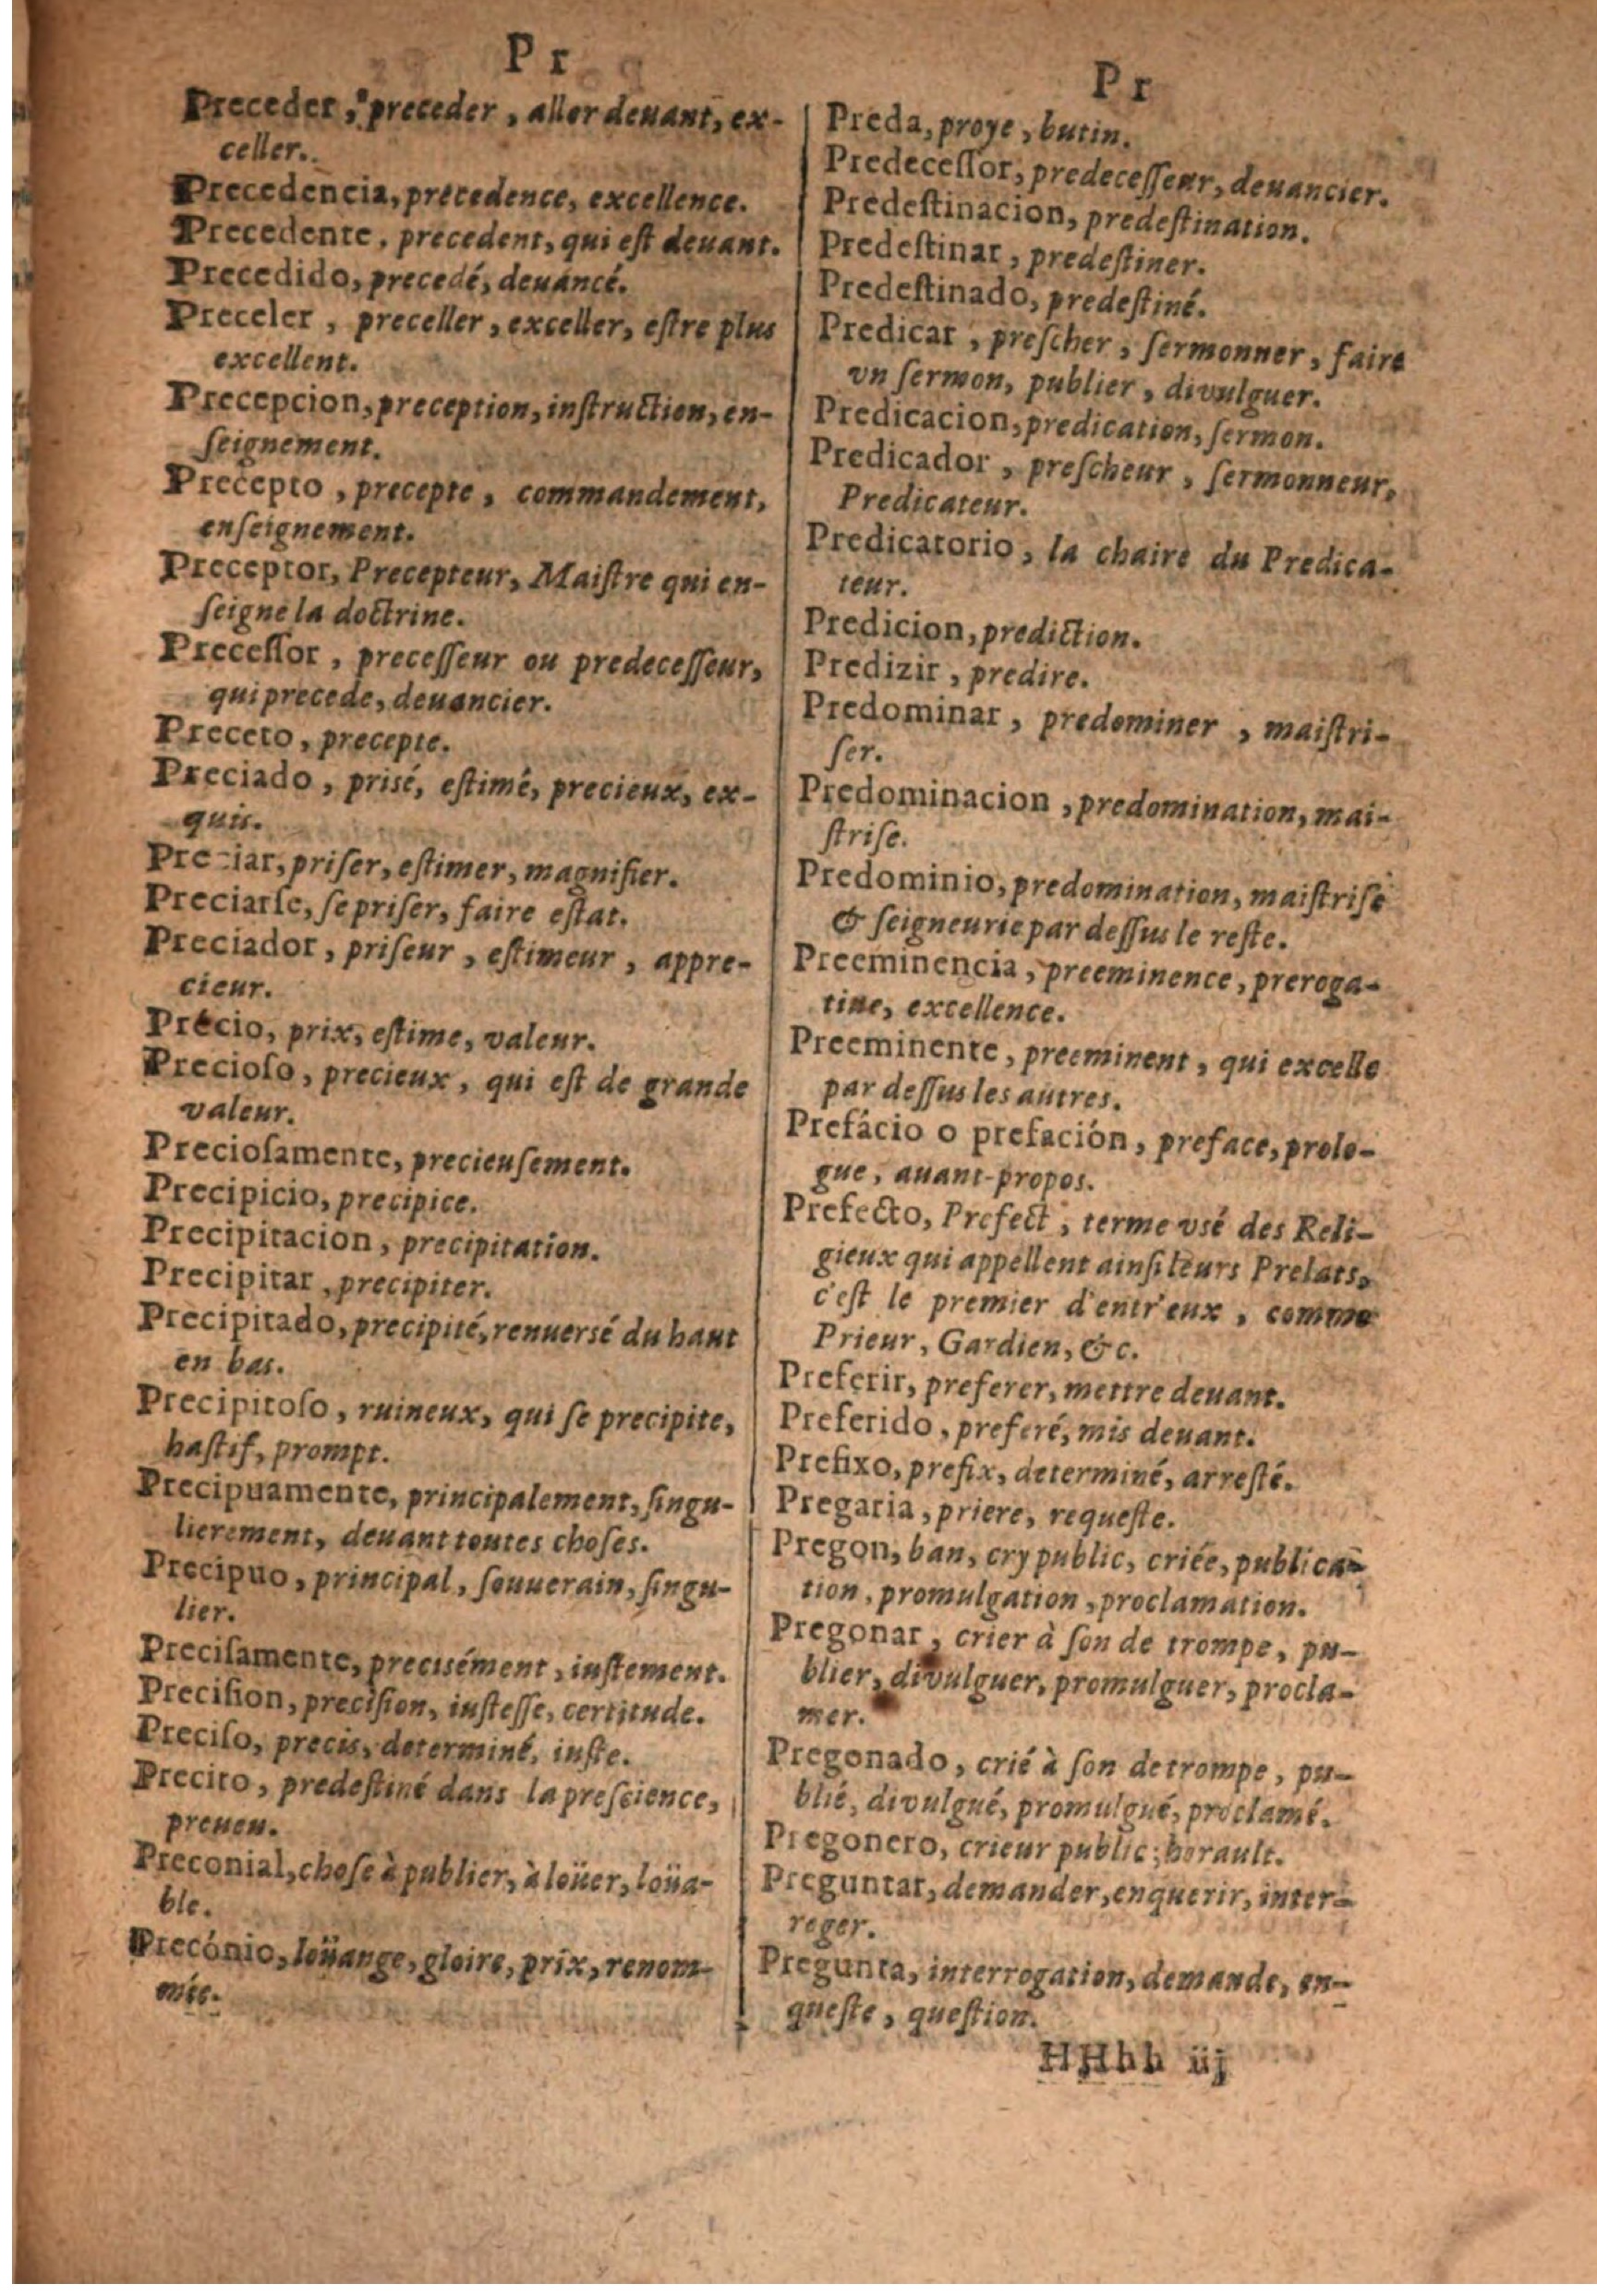 Pr
Preceder, preceder, aller deuant, ex-
celler.
Precedencia, precedence, excellence.
Precedente, precedent, qui eſt deuant.
Precedido, precedé, deuancé.
Preceler, preceller, exceller, eſtre plus
excellent.
Precepcion, preception, inſtruction, en-
ſeignement.
Precepto, precepte, commandement,
enſeignement.
Preceptor, Precepteur, Maiſtre qui en-
ſeigne la doctrine.
Preceſſor, preceſſeur ou predeceſſeur,
qui precede, deuancier.
Preceto, precepte.
Preciado, prisé, eſtimé, precieux, ex-
quis.
Preciar, priſer, eſtimer, magnifier.
Preciarſe, ſe priſer, faire eſtat.
Preciador, priſeur, eſtimeur, appre-
cieur.
Précio, prix, eſtime, valeur.
Precioſo, precieux, qui eſt de grande
valeur.
Precioſamente, precieuſement.
Precipicio, precipice.
Precipitacion, precipitation.
Precipitar, precipiter.
Precipitado, precipité, renuersé du haut
en bas.
Precipitoſo, ruineux, qui ſe precipite,
haſtif, prompt.
Precipuamente, principalement, ſingu-
lierement, deuant toutes choſes.
Precipuo, principal, ſouuerain, ſingu-
lier.
Preciſamente, precisément, iuſtement.
Preciſion, preciſion, iuſteſſe, certitude.
Preciſo, precis, determiné, iuſte.
Precito, predeſtiné dans la preſcience,
preueu.
Preconial, choſe à publier, à loüer, loüa-
ble.
Precónio, loüange, gloire, prix, renom-
mée.
Pr
Preda, proye, butin.
Predeceſſor, predeceſſeur, deuancier.
Predeſtinacion, predeſtination.
Predeſtinar, predeſtiner.
Predeſtinado, predeſtiné.
Predicar, preſcher, ſermonner, faire
vn ſermon, publier, divulguer.
Predicacion, predication, ſermon.
Predicador, preſcheur, ſermonneur,
Predicateur.
Predicatorio, la chaire du Predica-
teur.
Predicion, prediction.
Predizir, predire.
Predominar, predominer, maiſtri-
ſer.
Predominacion, predomination, mai-
ſtriſe.
Predominio, predomination, maiſtriſe
& ſeigneurie par deſſus le reſte.
Preeminencia, preeminence, preroga-
tiue, excellence.
Preeminente, preeminent, qui excelle
par deſſus les autres.
Prefácio o prefación, preface, prolo-
gue, auant-propos.
Prefecto, Prefect, terme vsé des Reli-
gieux qui appellent ainſi leurs Prelats,
c'eſt le premier d'entr'eux, comme
Prieur, Gardien, &c.
Preferir, preferer, mettre deuant.
Preferido, preferé, mis deuant.
Prefixo, prefix, determiné, arreſté.
Pregaria, priere, requeſte.
Pregon, ban, cry public, criée, publica-
tion, promulgation, proclamation.
Pregonar, crier à ſon de trompe, pu-
blier, divulguer, promulguer, procla-
mer.
Pregonado, crié à ſon de trompe, pu-
blié, divulgué, promulgué, proclamé.
Pregonero, crieur public, herault.
Preguntar, demander, enquerir, inter-
roger.
Pregunta, interrogation, demande, en-
queſte, queſtion.
HHhh iij